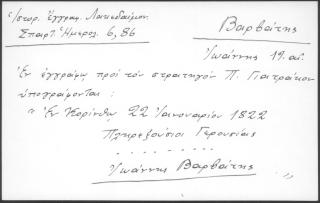 Ἱστορ. Ἐγγραφ. Λακεδαίμον.
Σπαρτ. Ἡμερολ. 6, 86
Βαρβάτης
Ἰωάννης 19. αἰ.
Ἐν ἐγγράφῳ πρός τόν στρατηγόν Π. Γιατράκον
ὑπογράφονται:
" Ἐν Κορίνθῳ 22 Ἰανουαρίου 1822
Πληρεξούσιοι Γερουσίας
. . . . . . . .
Ἰωάννης Βαρβάτης